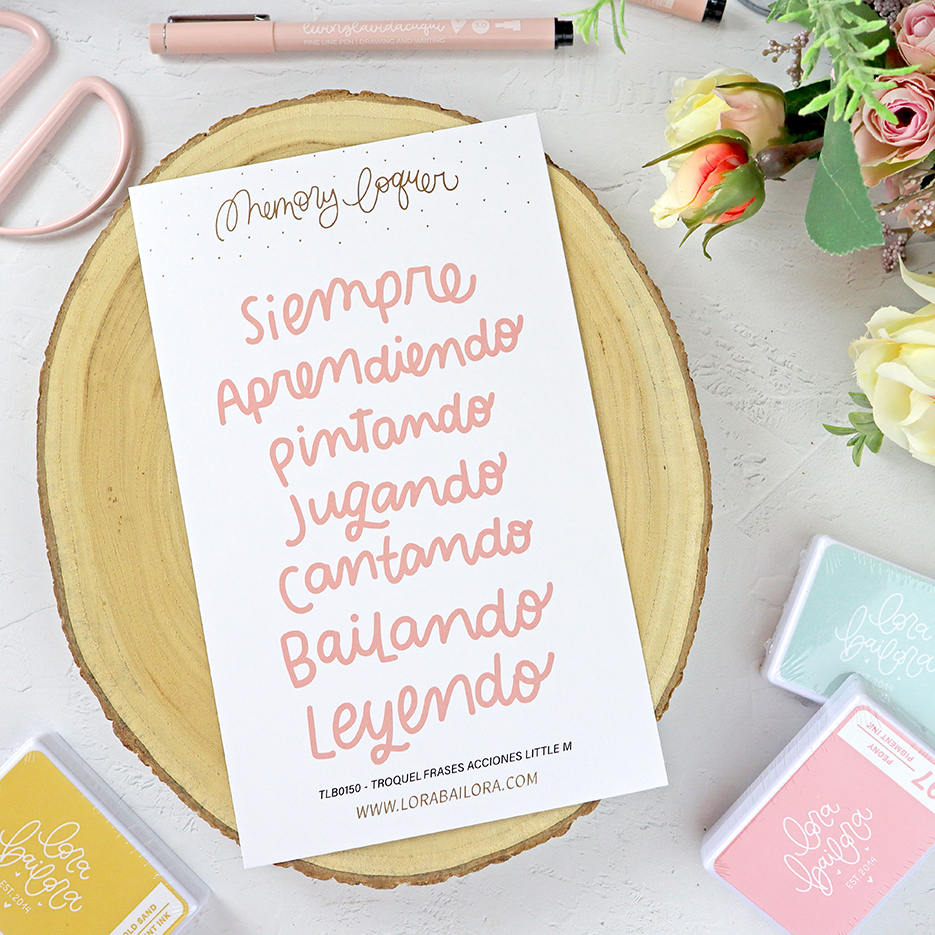 livinglavidacuqui
FINE LINE PEN | DRAWING AND WRITING
Memory Loquer
Siempre
Aprendiendo
pintando
Jugando
Cantando
Bailando
Leyendo
TLB0150 - TROQUEL FRASES ACCIONES LITTLE M
WWW.LORABAILORA.COM
lora
bailora
lora
bailora
EST. 2014
PEONY
PIGMENT INK
lora
bailora
EST. 2014